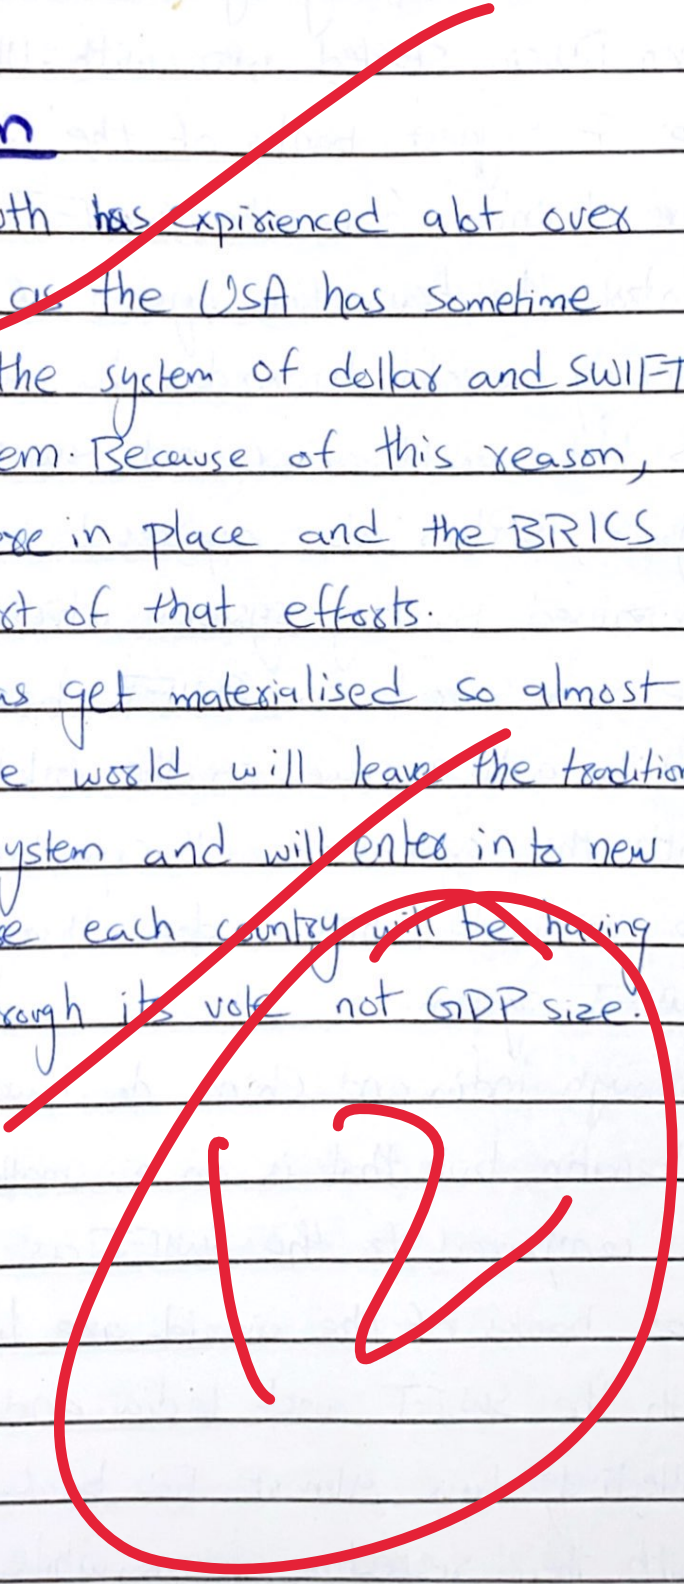 n
oth has expirienced abt over
as the USA has sometime
the system of dollar and SWIFT
em. Because of this reason,
ere in place and the BRICS
rt of that efforts.
as get materialised so almost
e world will leave the tradition
ystem and will enter in to new
e each country will be having
rough its vote not GDP size.
12